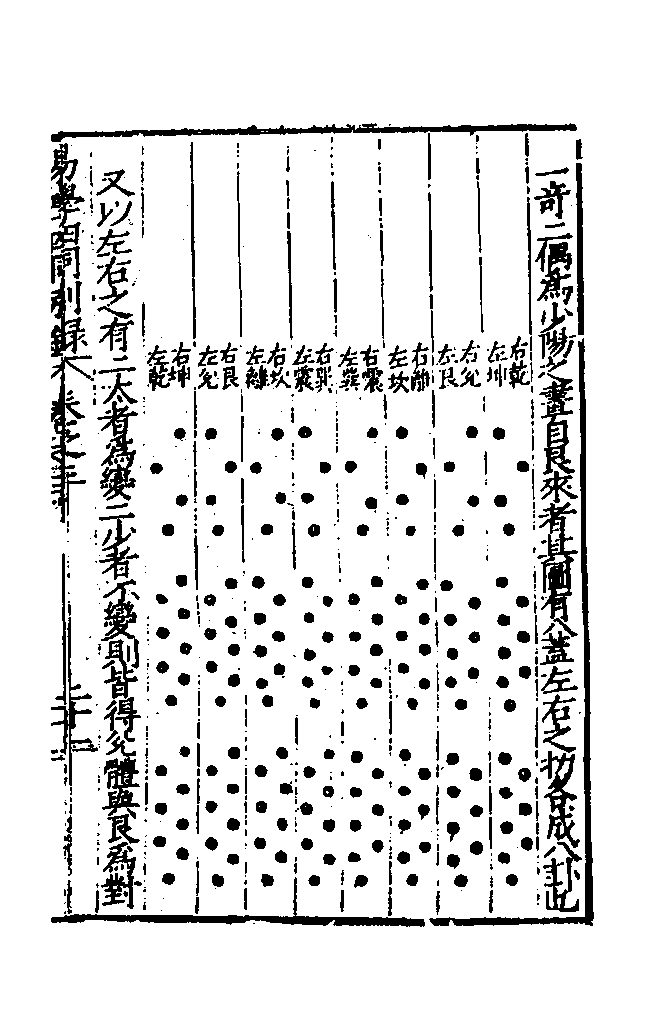 一奇二偶為少陽之畫自艮來者其圖有八蓋左右之扐各成八卦此
右乾
左坤
右兊
左艮
右離
左坎
右震
左巽
右巽
左震
右坎
左離
右艮
左兊
右坤
左乾
又以左右之有二太者為變二少者不變則皆得兊體與艮為對
易學四同別錄 卷之三 二十一